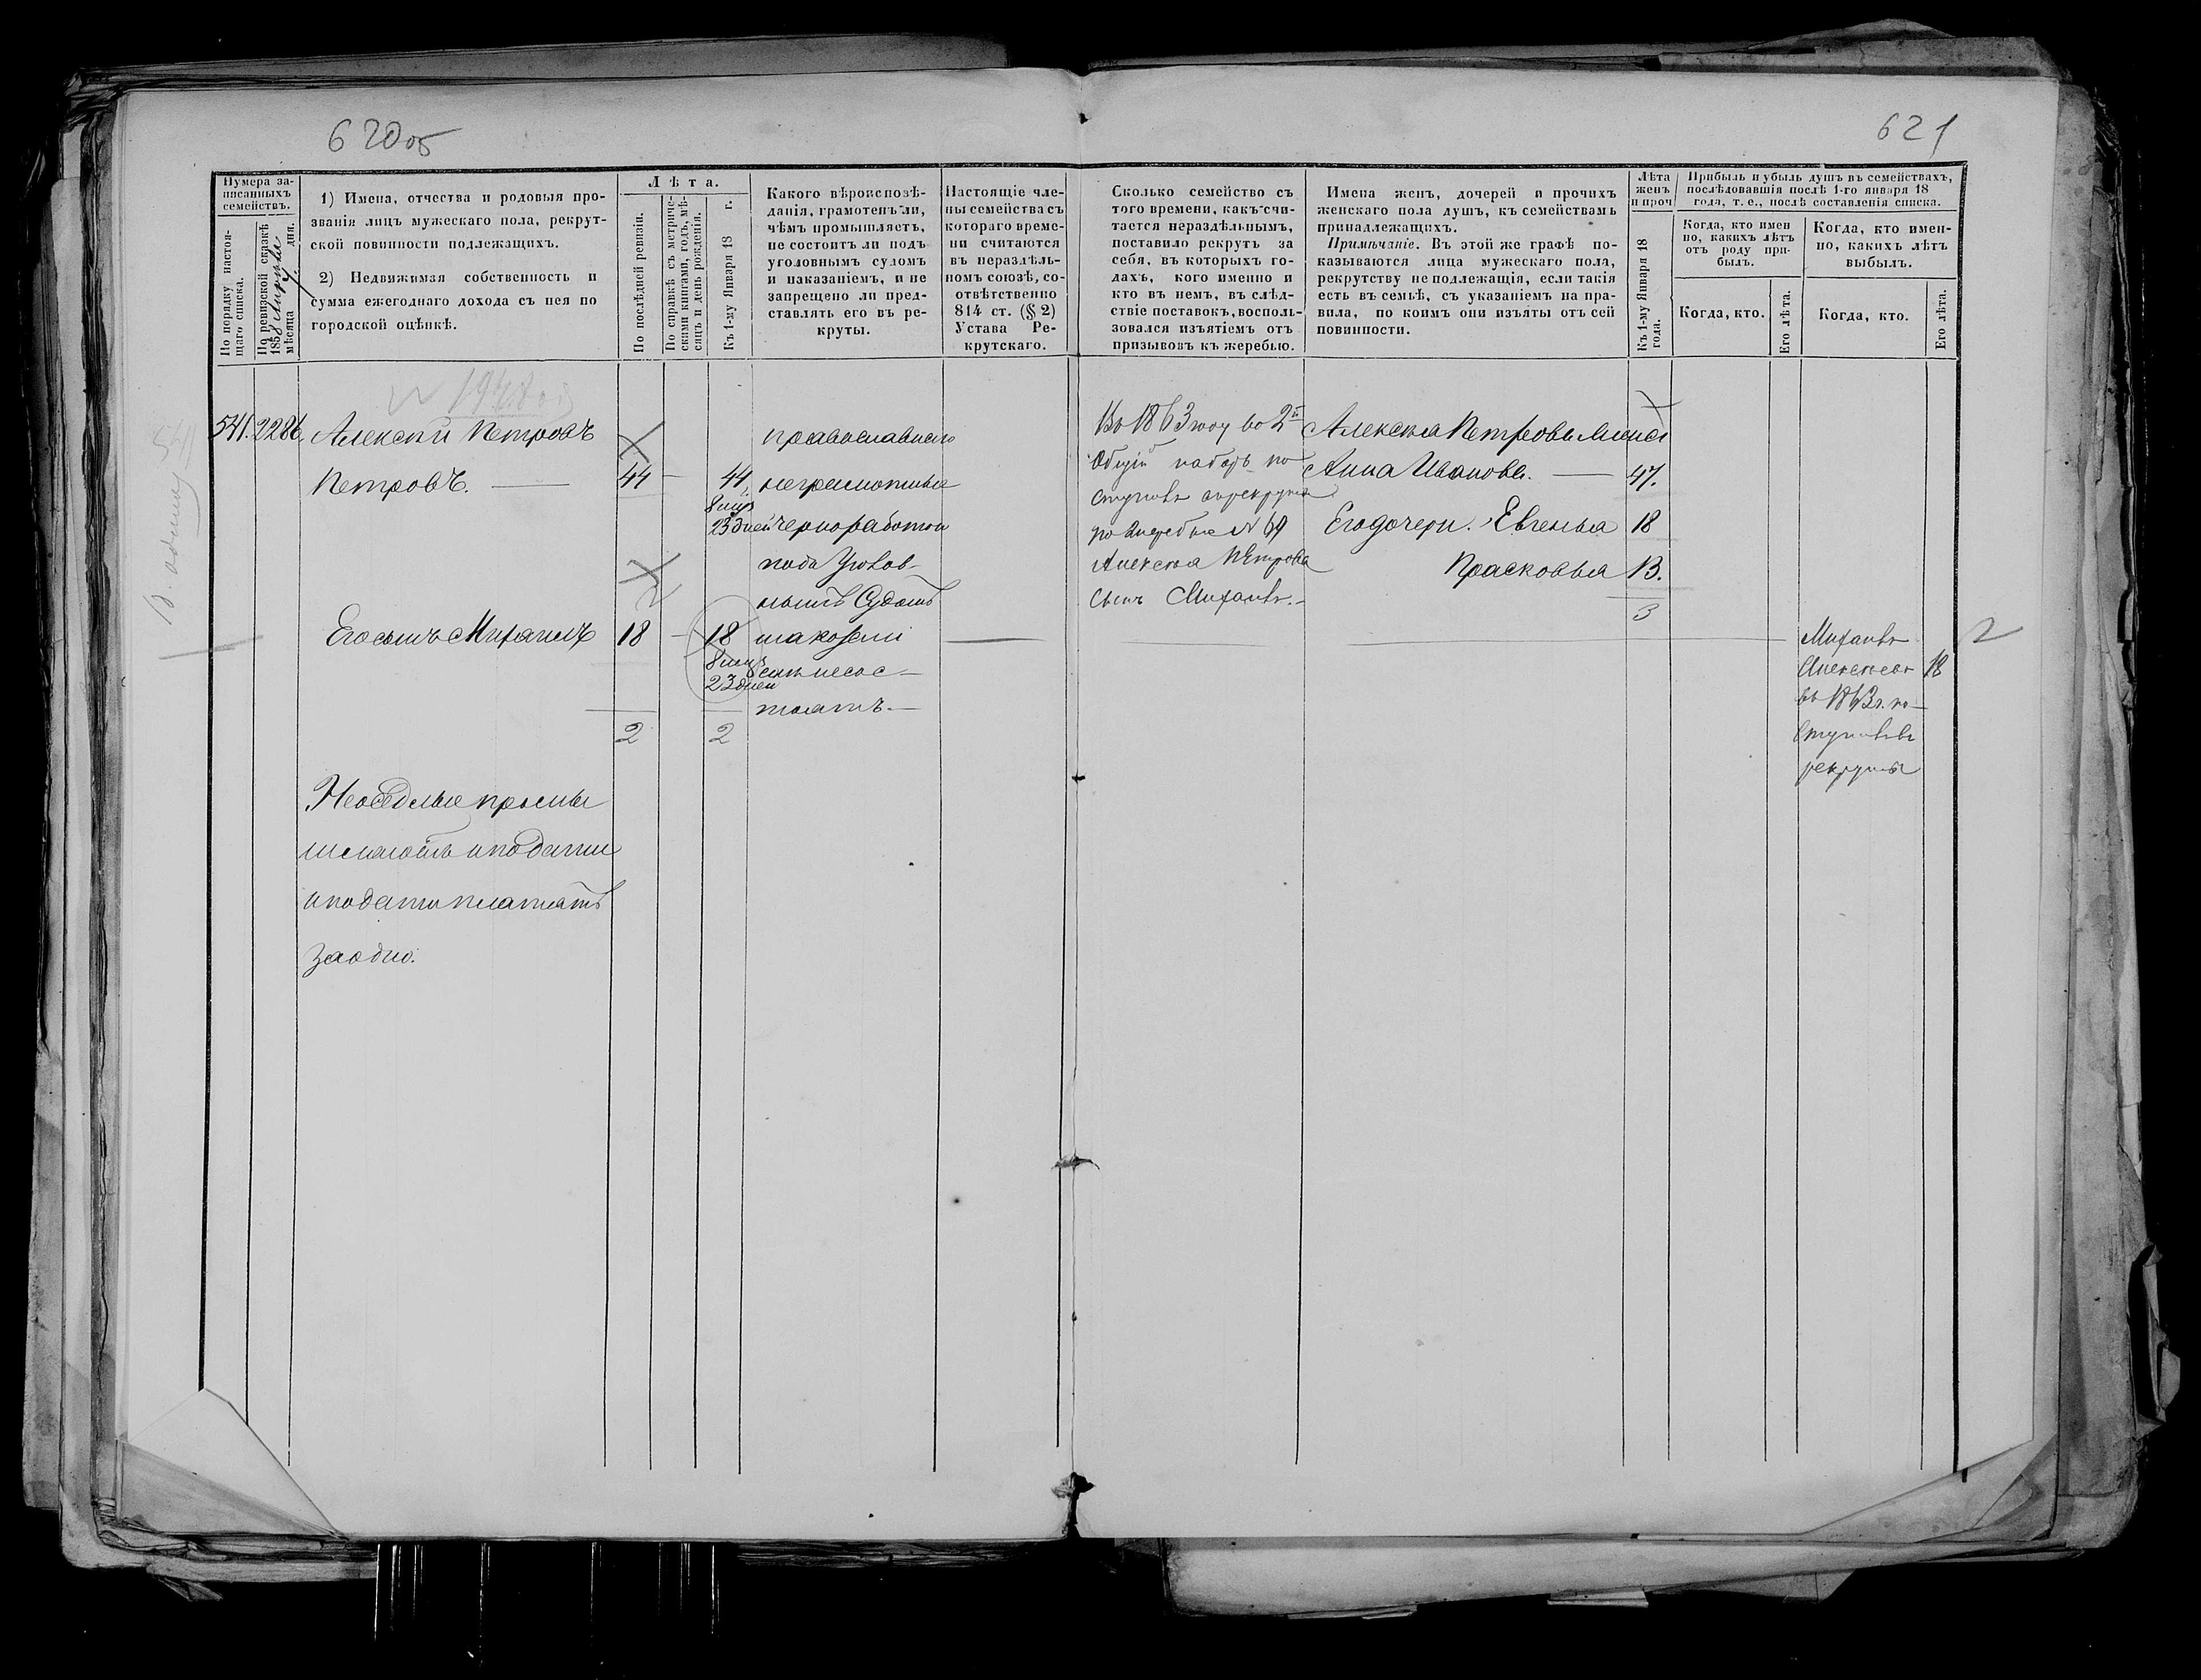 620об
621
Нумера за-
писанныхъ
семействъ.
По порядку настоя-
щаго списка.
По ревизской сказкѣ
1858
мѣсяца дня.
1) Имена, отчества и родовыя про-
званія лицъ мужескаго пола, рекрут-
ской повинности подлежащихъ.
2) Недвижимая собственность и
сумма ежегоднаго дохода съ нея по
городской оцѣнкѣ.
Лѣта.
По послѣдней ревизіи.
По справкѣ съ метриче-
скими книгами, годъ, мѣ-
сяцъ и день рожденія.
Къ 1-му Января 18 г.
Какого вѣроисповѣ-
данія, грамотенъ ли,
чѣмъ промышляетъ,
не состоитъ ли подъ
уголовнымъ судомъ
и наказаніемъ, и не
запрещено ли пред-
ставлять его въ ре-
круты.
Настоящіе чле-
ны семейства съ
котораго време-
ни считаются
въ нераздѣль-
номъ союзѣ, со-
отвѣтственно
814 ст. (§ 2)
Устава Ре-
крутскаго.
Сколько семейство съ
того времени, какъ счи-
тается нераздѣльнымъ,
поставило рекрутъ за
себя, въ которыхъ го-
дахъ, кого именно и
кто въ немъ, въ слѣд-
ствіе поставокъ, восполь-
зовался изъятіемъ отъ
призывовъ къ жеребью.
Имена женъ, дочерей и прочихъ
женскаго пола душъ, къ семействамъ
принадлежащихъ.
Примѣчаніе. Въ этой же графѣ по-
казываются лица мужескаго пола,
рекрутству не подлежащія, если такія
есть въ семьѣ, съ указаніемъ на пра-
вила, по коимъ они изъяты отъ сей
повинности.
Лѣта
женъ
и проч
Къ 1-му Января 18
года.
Прибыль и убыль душъ въ семействахъ,
послѣдовавшія послѣ 1-го января 18
года, т. е., послѣ составленія списка.
Когда, кто имен
но, какихъ лѣтъ
отъ роду при-
былъ.
Когда, кто.
Его лѣта.
Когда, кто имен-
но, какихъ лѣтъ
выбылъ.
Когда, кто.
Его лѣта.
541. 2286.
Алексѣй Петровъ
Петровъ. —
44 — 44
8 мѣс
23 дней
Его сынъ Михаилъ 18 — 18
8 мѣс
23 дней
2 2
Неосѣдлые промы
и подати платятъ
заодно.
православнаго
неграмотные
чернорабочіи
подъ Уголов-
нымъ Судомъ
несос-
тоятъ.—
Въ 1863 году во 2й
Общій наборъ по
ступилъ в рекруты
по жеребью № 69
Алексѣя Петрова
сынъ Михаилъ.—
Алексѣя Петрова жена
Анна Иванова. — 47.
Его дочери. Евгенья 18
Прасковья 13.
3
Михаилъ
Алексѣевъ 18
въ 1863 г. по-
ступилъ въ
рекруты
2